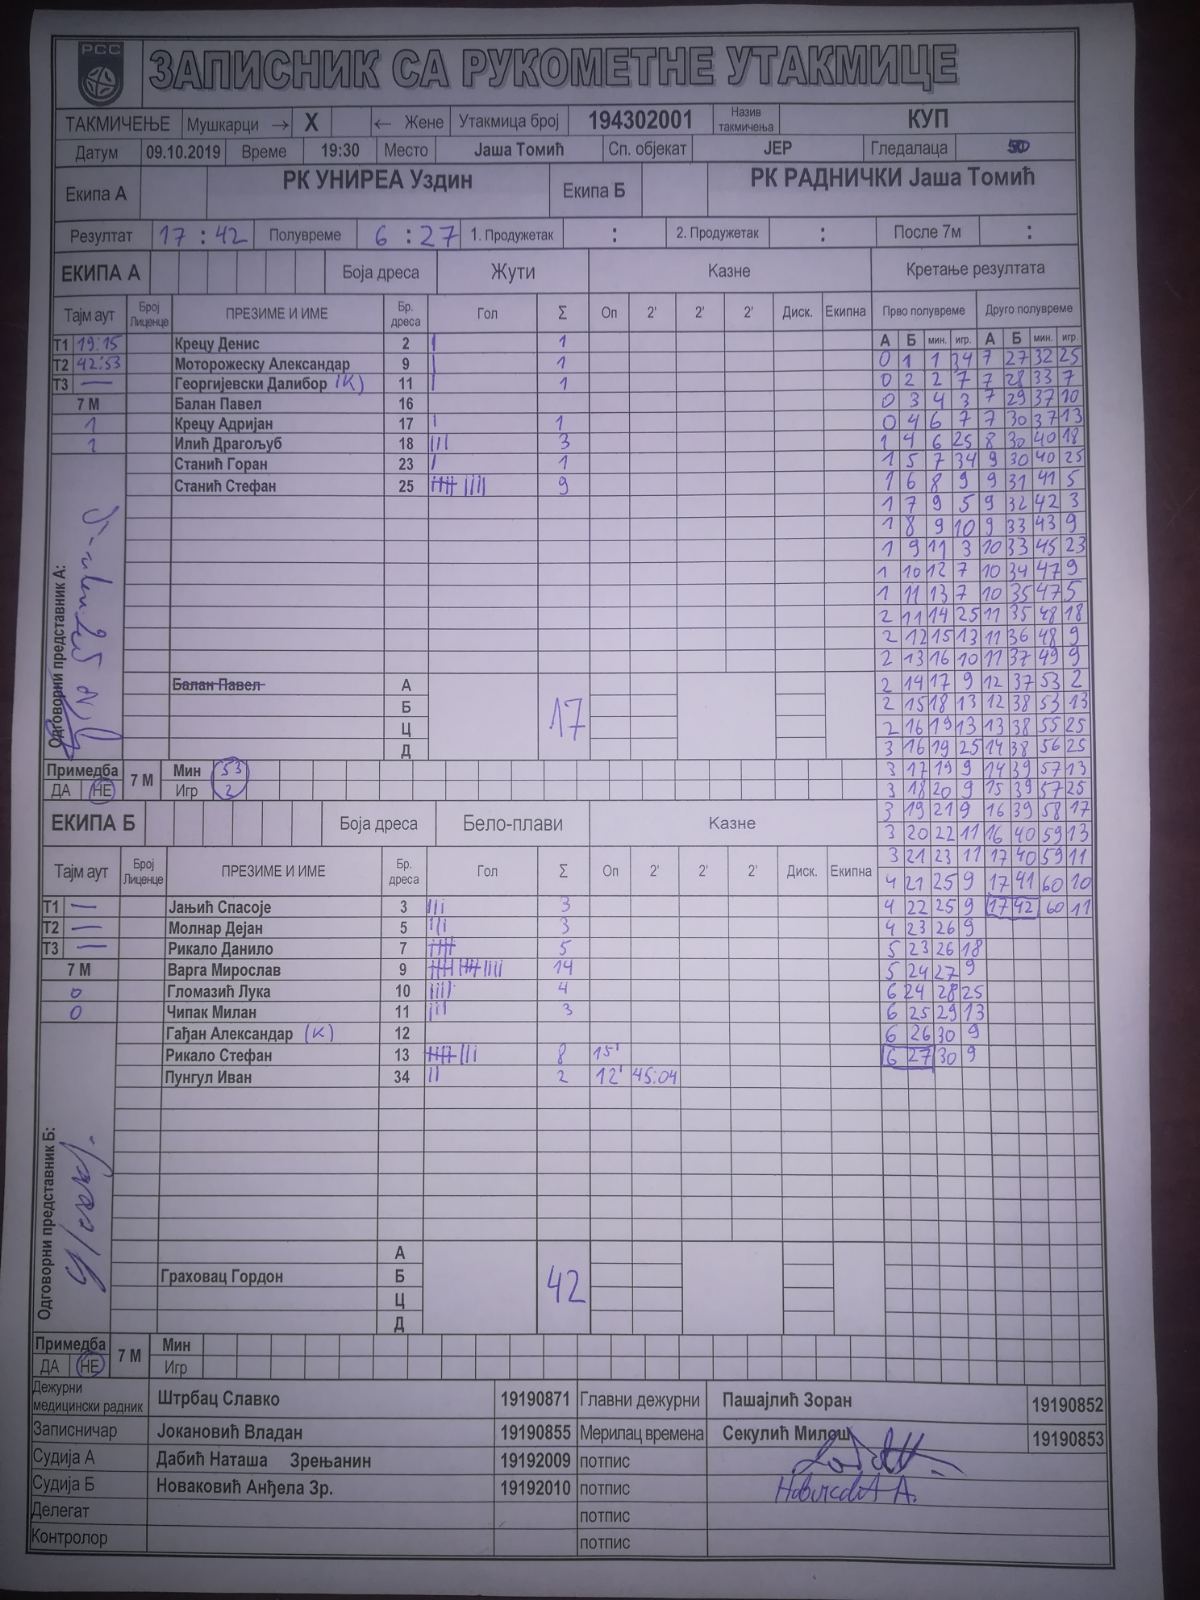 РСС
ЗАПИСНИК СА РУКОМЕТНЕ УТАКМИЦЕ
ТАКМИЧЕЊЕ Мушкарци → X ← Жене Утакмица број 194302001 Назив такмичења КУП
Датум 09.10.2019 Време 19:30 Место Јаша Томић Сп. објекат ЈЕР Гледалаца 50
Екипа А РК УНИРЕА Уздин Екипа Б РК РАДНИЧКИ Јаша Томић
Резултат 17 : 42 Полувреме 6 : 27 1. Продужетак : 2. Продужетак : После 7м :
ЕКИПА А Боја дреса Жути Казне Кретање резултата
Тајм аут Број Лиценце ПРЕЗИМЕ И ИМЕ Бр. дреса Гол Σ Оп 2' 2' 2' Диск. Екипна Прво полувреме Друго полувреме
А Б мин. игр. А Б мин. игр.
Т1 19:15 Крецу Денис 2 | 1
0 1 1 34 7 27 32 25
Т2 42:53 Моторожеску Александар 9 | 1
0 2 2 7 7 28 33 7
Т3 — Георгијевски Далибор (К) 11 | 1
0 3 4 3 7 29 37 10
7 М Балан Павел 16
0 4 6 7 7 30 37 13
1 Крецу Адријан 17 | 1
1 4 6 25 8 30 40 18
1 Илић Драгољуб 18 ||| 3
1 5 7 34 9 30 40 25
Станић Горан 23 | 1
1 6 8 9 9 31 41 5
Станић Стефан 25 |||| |||| 9
1 7 9 5 9 32 42 3
1 8 9 10 9 33 43 9
1 9 11 3 10 33 45 23
1 10 12 7 10 34 47 9
1 11 13 7 10 35 47 5
2 11 14 25 11 35 48 18
2 12 15 13 11 36 48 9
2 13 16 10 11 37 49 9
Одговорни представник А:
Балан Павел А
2 14 17 9 12 37 53 2
Б
2 15 18 13 12 38 53 13
Ц 17
2 16 19 13 13 38 55 25
Д
3 16 19 25 14 38 56 25
Примедба 7 М Мин 53
3 17 19 9 14 39 57 13
ДА НЕ Игр 2
3 18 20 9 15 39 57 25
3 19 21 9 16 39 58 17
ЕКИПА Б Боја дреса Бело-плави Казне
3 20 22 11 16 40 59 13
3 21 23 11 17 40 59 11
Тајм аут Број Лиценце ПРЕЗИМЕ И ИМЕ Бр. дреса Гол Σ Оп 2' 2' 2' Диск. Екипна
4 21 25 9 17 41 60 10
Т1 — Јањић Спасоје 3 ||| 3
4 22 25 9 17 42 60 11
Т2 — Молнар Дејан 5 ||| 3
4 23 26 9
Т3 — Рикало Данило 7 |||| 5
5 23 26 18
7 М Варга Мирослав 9 |||| |||| |||| 14
5 24 27 9
0 Гломазић Лука 10 |||| 4
6 24 28 25
0 Чипак Милан 11 ||| 3
6 25 29 13
Гађан Александар (К) 12
6 26 30 9
Рикало Стефан 13 |||| ||| 8 15'
6 27 30 9
Пунгул Иван 34 || 2 12' 45:04
Одговорни представник Б:
А
Граховац Гордон Б 42
Ц
Д
Примедба 7 М Мин
ДА НЕ Игр
Дежурни медицински радник Штрбац Славко 19190871 Главни дежурни Пашајлић Зоран 19190852
Записничар Јокановић Владан 19190855 Мерилац времена Секулић Милош 19190853
Судија А Дабић Наташа Зрењанин 19192009 потпис
Судија Б Новаковић Анђела Зр. 19192010 потпис
Делегат потпис
Контролор потпис